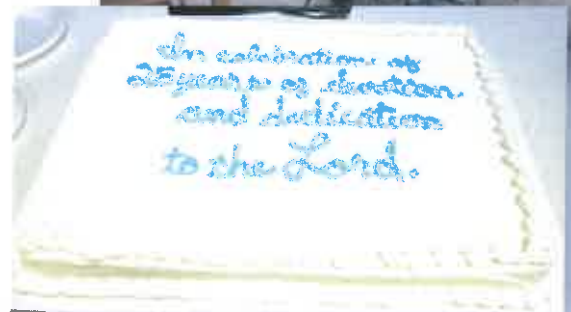 In celebration of
25 years of devotion
and dedication
to the Lord.